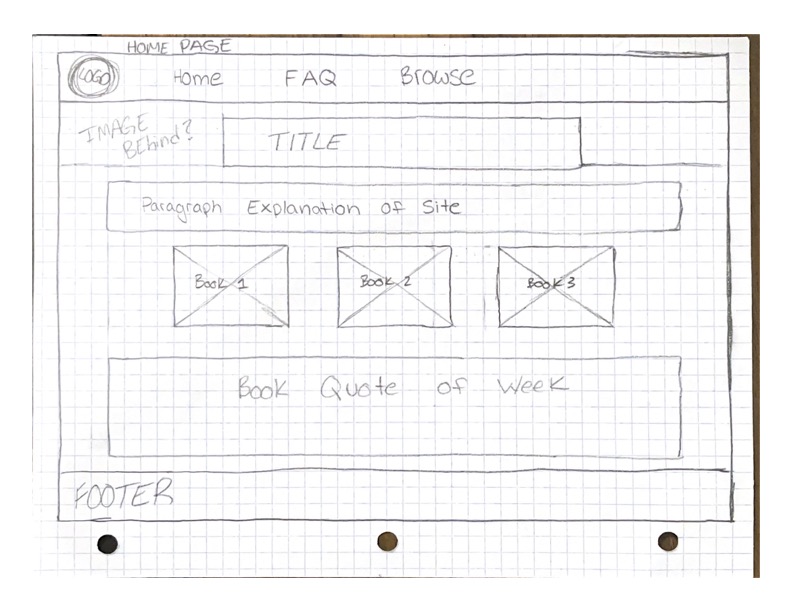 HOME PAGE
LOGO Home FAQ Browse
IMAGE
BEhind?
TITLE
Paragraph Explanation of Site
Book 1 Book 2 Book 3
Book Quote of Week
FOOTER